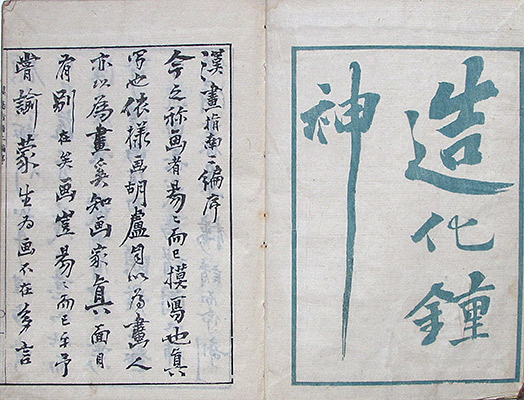 造化鍾
神
漢畫指南二編序
今之称画者易〻而已摸寫也真
寫也依様画胡盧自以為畫人
亦以為畫奚知画家真面目
有別在矣画豈易〻而已乎予
嘗諭蒙生為画不在多言